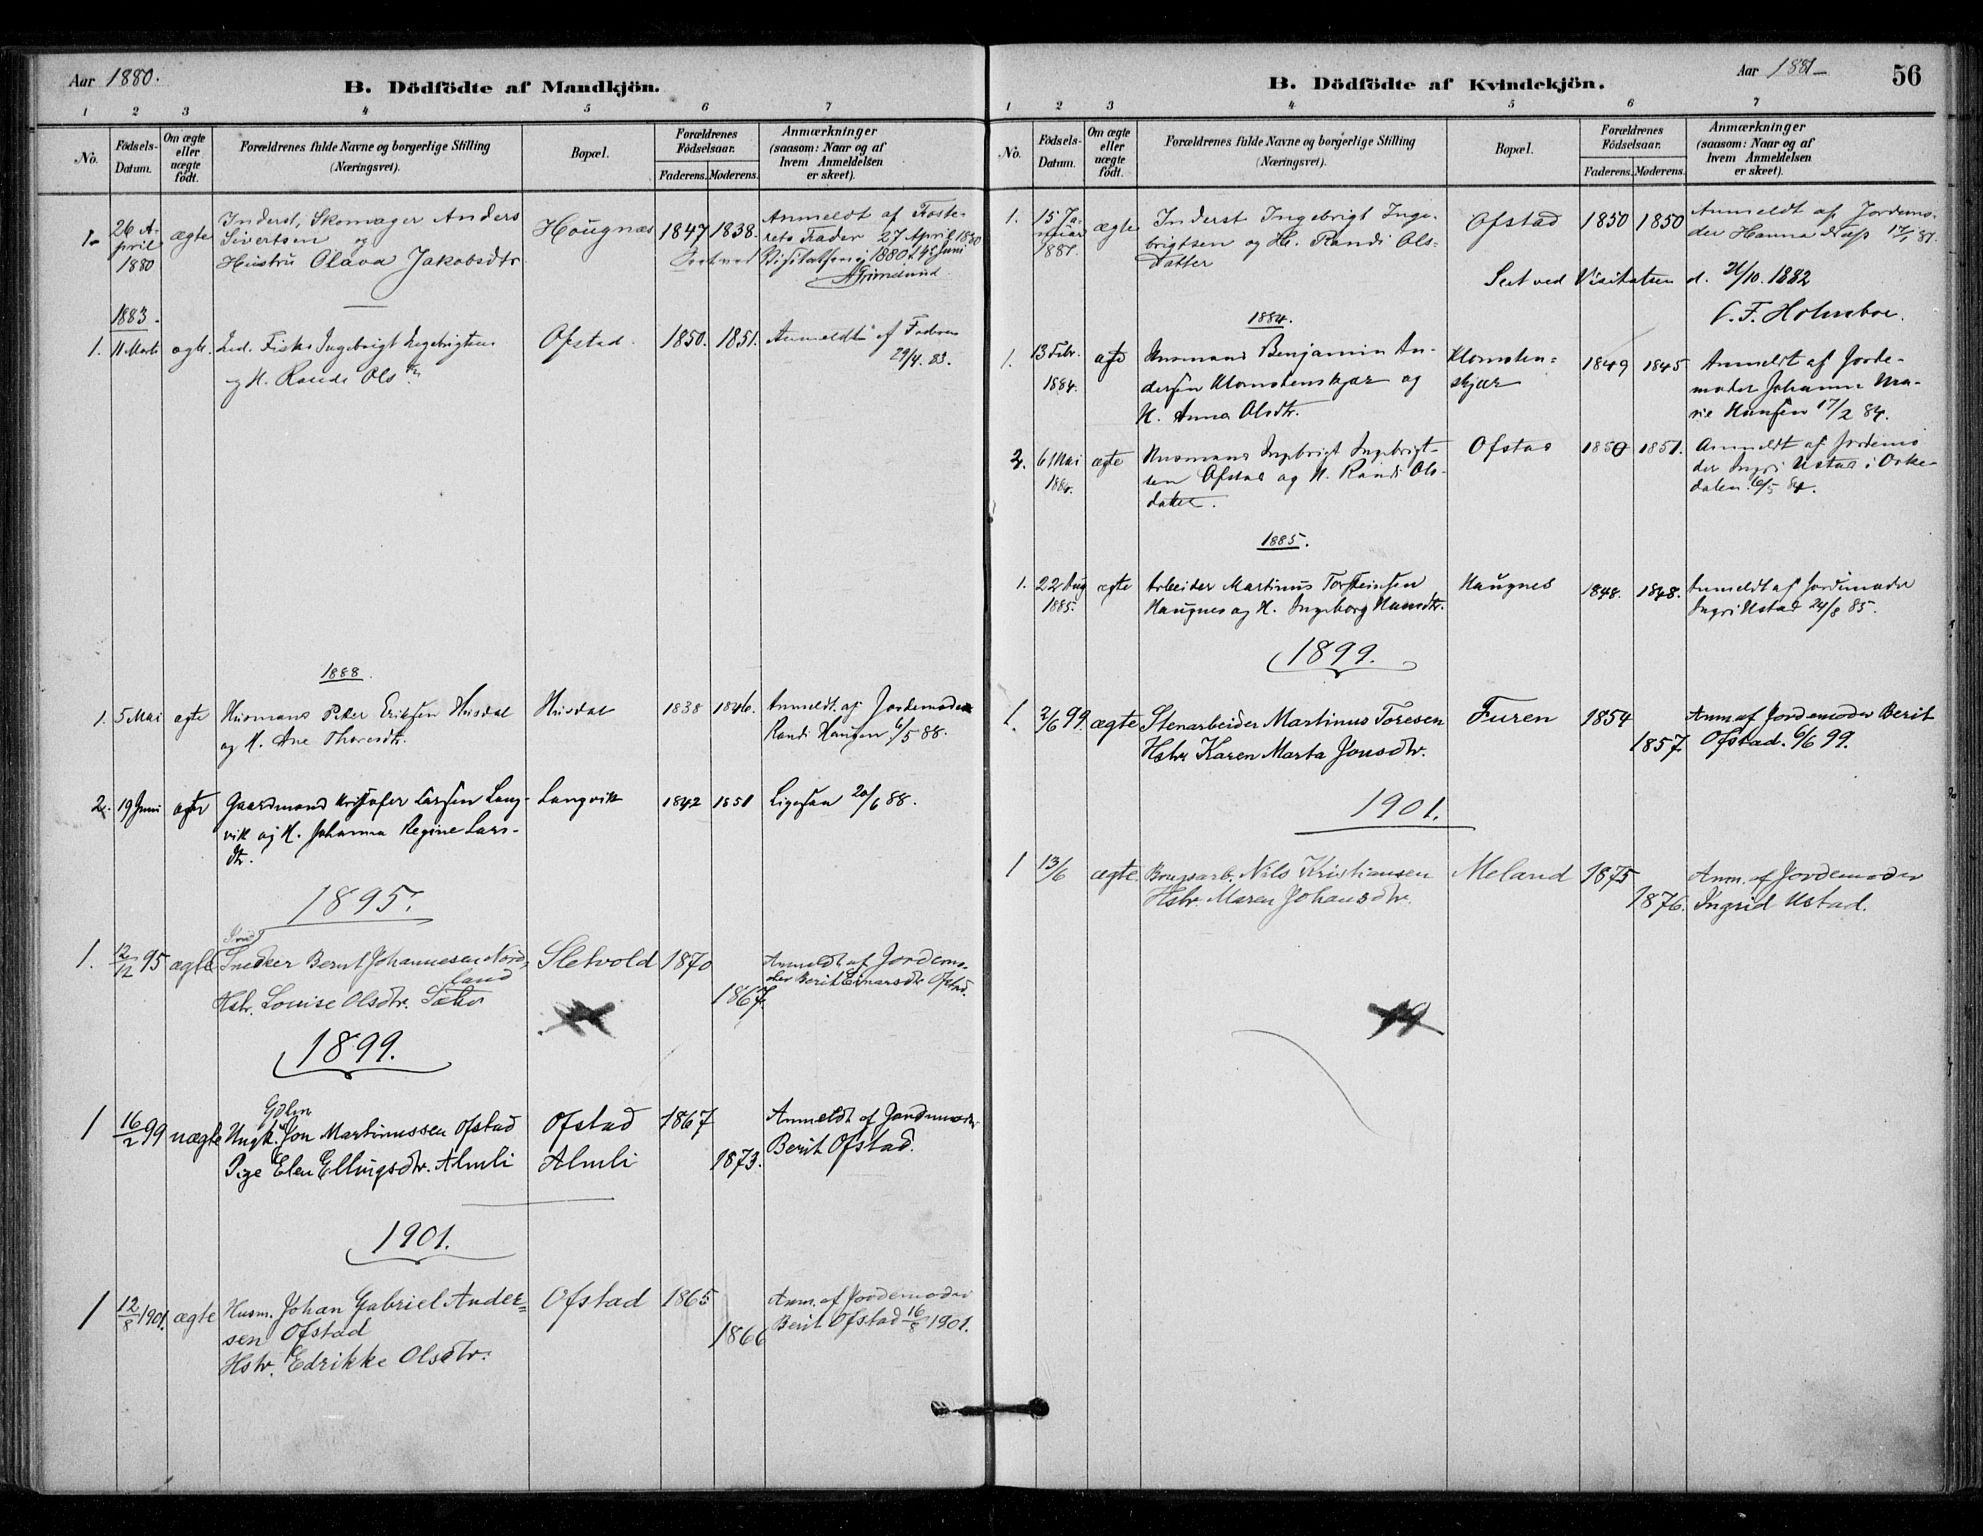 Aar 1880.
B. Dödfödte af Mandkjön.
1 2 3 4 5 6 7
No.
Födsels-Datum.
Om ægte eller uægte födt.
Forældrenes fulde Navne og borgerlige Stilling (Næringsvei).
Bopæl.
Forældrenes Födselsaar.
Faderens. Moderens.
Anmærkninger (saasom: Naar og af hvem Anmeldelsen er skeet).
1. 26 April 1880 ægte Inderst, Skomager Anders
Sivertsen og
Hustru Olava Jakobsdtr
Hougnæs 1847 1838.
Anmeldt af Foste-
rets Fader 27 April 1880
Seet ved Visitatsen i 1880 Juni
AGrimelund
1883.
1. 11 Marts ægte. Ind. Fisker Ingebrigt Ingebrigtsen
og H. Randi Olsdtr
Ofstad. 1850. 1851. Anmeldt af Faderen
29/4. 83.
1888.
1. 5 Mai ægte Husmand Peter Eriksen Husdal
og H. Ane Thoresdtr.
Husdal 1838 1846. Anmeldt af Jordemoder
Randi Haugen 6/5 88.
2. 19 Juni ægte Gaardmand Kristofer Larsen Lang-
vik og H. Johanna Regine Lars-
dtr.
Langvik 1842 1851 Ligesaa 20/6 88.
1895.
1. 12/12 95 ægte Snedker Bernt Johannesen Nord-
land
Hstr. Louise Olsdtr. Sæter
Sletvold 1870
1867.
Anmeldt af Jordemo-
der Berit Einarsdtr Ofstad.
1899.
1 16/2 99 uægte Ungk. Jon Martinussen Ofstad
Pige Elen Ellingsdtr. Almli
Ofstad 1867
Almli 1873.
Anmeldt af Jordemoder
Berit Ofstad.
1901.
1 12/8 1901. ægte Husm. Johan Gabriel Ander-
sen Ofstad
Hstr. Edrikke Olsdtr.
Ofstad 1865
1866
Anm. af Jordemoder
Berit Ofstad 16/8 1901.
Aar 1881
56
B. Dödfödte af Kvindekjön.
1 2 3 4 5 6 7
No.
Födsels-Datum.
Om ægte eller uægte födt.
Forældrenes fulde Navne og borgerlige Stilling (Næringsvei).
Bopæl.
Forældrenes Födselsaar.
Faderens. Moderens.
Anmærkninger (saasom: Naar og af hvem Anmeldelsen er skeet).
1. 15 Januar 1881. ægte Inderst Ingebrigt Inge-
brigtsen og H. Randi Ols-
datter
Ofstad 1850 1850 Anmeldt af Jordemo-
der Hanna Næss 17/1 81.
Seet ved Visitatsen d. 21/10. 1882
C. F. Holmboe.
1884.
1. 13 Febr. 1884. ægte Husmand Benjamin An-
dersen Klomstenskjær og
H. Anna Olsdtr.
Klomsten-
skjær
1849 1845 Anmeldt af Jorde-
moder Johanna Ma-
rie Hansen 17/2 84.
2. 6 Mai 1884. ægte Husmand Ingebrigt Ingebrigt-
sen Ofstad og H. Randi Ols-
datter.
Ofstad 1850 1851. Anmeldt af Jordemo
der Ingri Ustad i Orke-
dalen. 6/5 84.
1885.
1. 22 Aug 1885. ægte Arbeider Martinus Torsteinsen
Haugnes og H. Ingeborg Hansdtr.
Haugnes 1848. 1848. Anmeldt af Jordemoder
Ingri Ustad 24/8 85.
1899.
1. 2/6 99. ægte Stenarbeider Martinus Toresen
Hstr Karen Marta Jonsdtr.
Furen 1854
1857.
Anm af Jordemoder Berit
Ofstad. 6/6 99.
1901.
1 13/6 ægte. Brugsarb. Nils Kristiansen
Hstr. Maren Johansdtr.
Meland 1875
1876.
Anm. af Jordemoder
Ingrid Ustad.